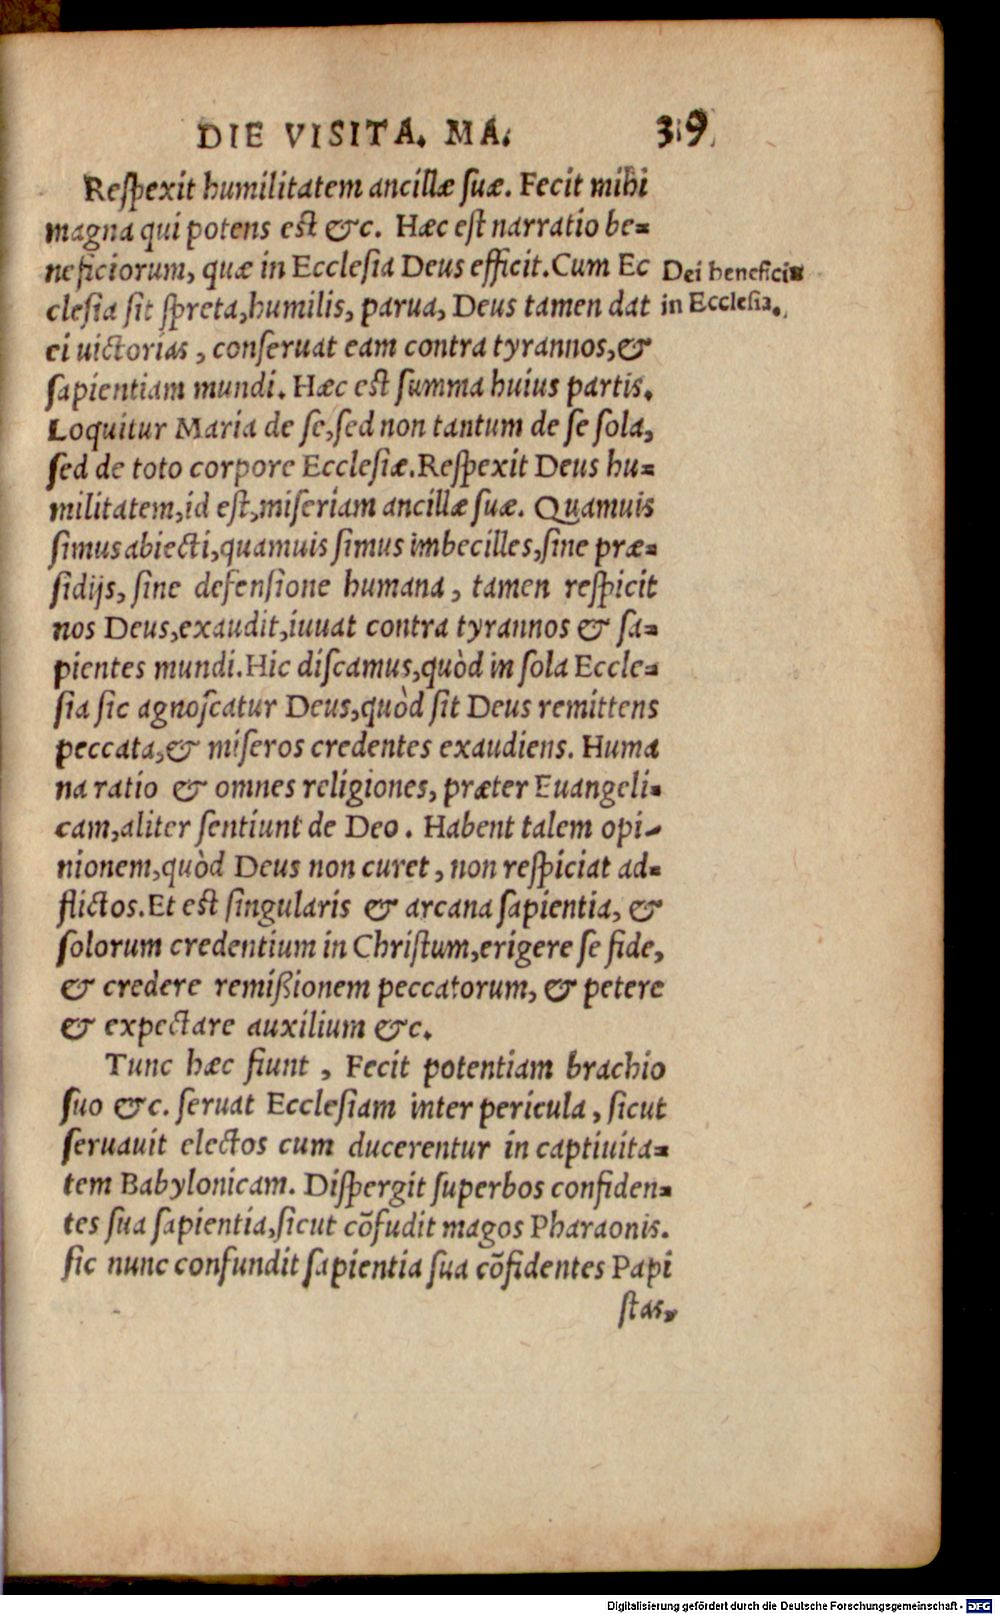 DIE VISITA. MA. 319
Respexit humilitatem ancillæ suæ. Fecit mihi
magna qui potens est &c. Hæc est narratio be=
neficiorum, quæ in Ecclesia Deus efficit. Cum Ec
clesia sit spreta, humilis, parua, Deus tamen dat
ei uictorias, conseruat eam contra tyrannos, &
sapientiam mundi. Hæc est summa huius partis.
Loquitur Maria de se, sed non tantum de se sola,
sed de toto corpore Ecclesiæ. Respexit Deus hu=
militatem, id est, miseriam ancillæ suæ. Quamuis
simus abiecti, quamuis simus imbecilles, sine præ=
sidijs, sine defensione humana, tamen respicit
nos Deus, exaudit, iuuat contra tyrannos & sa=
pientes mundi. Hic discamus, quòd in sola Eccle=
sia sic agnoscatur Deus, quòd sit Deus remittens
peccata, & miseros credentes exaudiens. Huma
na ratio & omnes religiones, præter Euangeli=
cam, aliter sentiunt de Deo. Habent talem opi-
nionem, quòd Deus non curet, non respiciat ad=
flictos. Et est singularis & arcana sapientia, &
solorum credentium in Christum, erigere se fide,
& credere remißionem peccatorum, & petere
& expectare auxilium &c.
Tunc hæc fiunt, Fecit potentiam brachio
suo &c. seruat Ecclesiam inter pericula, sicut
seruauit electos cum ducerentur in captiuita=
tem Babylonicam. Dispergit superbos confiden=
tes sua sapientia, sicut cõfudit magos Pharaonis.
sic nunc confundit sapientia sua cõfidentes Papi
stas,
Dei beneficia
in Ecclesia.
Digitalisierung gefördert durch die Deutsche Forschungsgemeinschaft - DFG